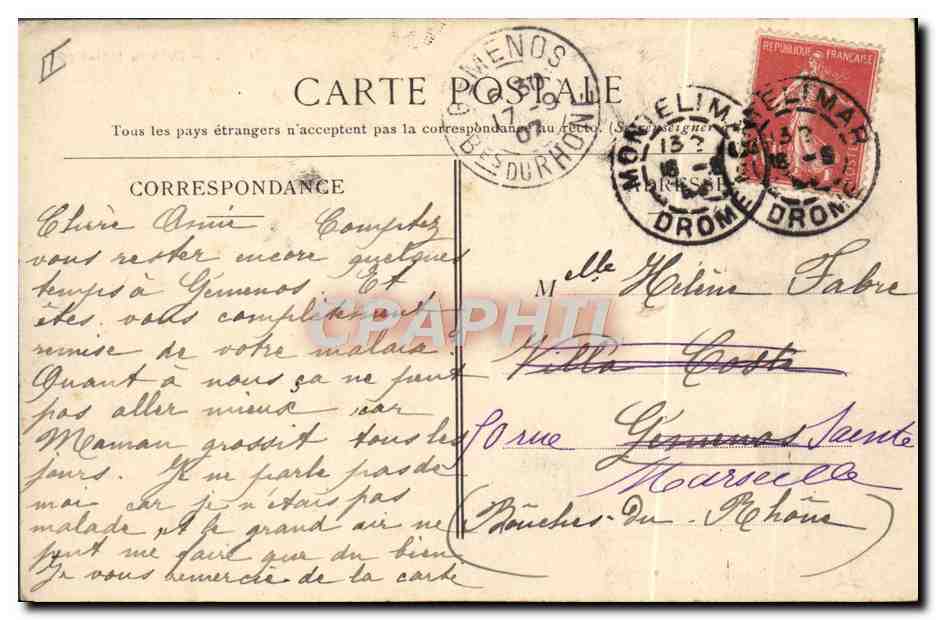 CARTE POSTALE
Tous les pays étrangers n'acceptent pas la correspondance au recto. (Se renseigner
CORRESPONDANCE
Chère Amie. Comptez
vous rester encore quelques
temps à Gémenos. Et
êtes vous complètement
remise de votre malaia.
Quant à nous ça ne peut
pas aller mieux car
Maman grossit tous les
jours. Je ne parle pas de
moi car je n'étais pas
malade et le grand air ne
peut me faire que du bien
Je vous remercie de la carte
GEMENOS
6 30
17 -9
07
BES DU RHONE
MONTELIMAR
13
16 -9
DROME
MONTELIMAR
13
16 -9
DROME
REPUBLIQUE FRANÇAISE
POSTES
ADRESSE
Melle Hélène Fabre
Villa Costa
50 rue Gémenos Sainte
Marseille
(Bouches-du-Rhône)
CPAPHIL